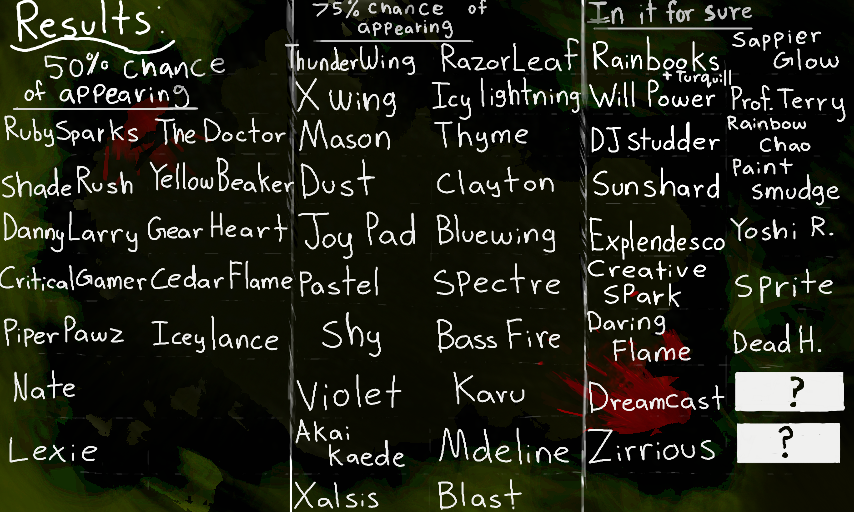 Results:
50% chance
of appearing
RubySparks The Doctor
Shade Rush YellowBeaker
DannyLarry Gear Heart
CriticalGamer Cedar Flame
Piper Pawz Iceylance
Nate
Lexie
>75% chance of
appearing
ThunderWing RazorLeaf
X wing Icy lightning
Mason Thyme
Dust Clayton
Joy Pad Bluewing
Pastel Spectre
Shy Bass Fire
Violet Karu
Akai
Kaede Mdeline
Xalsis Blast
In it for sure
Rainbooks
+ Turquill
Will Power
DJ studder
Sunshard
Explendesco
Creative
Spark
Daring
Flame
Dreamcast
Zirrious
Sappier
Glow
Prof. Terry
Rainbow
Chao
Paint
smudge
Yoshi R.
Sprite
Dead H.
?
?